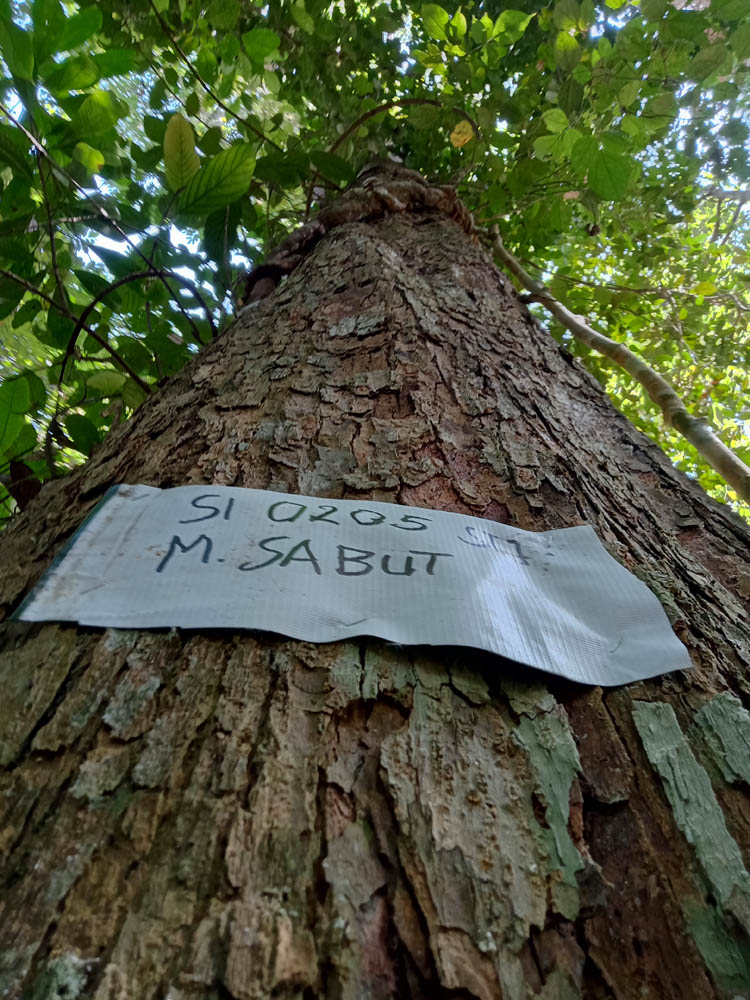 SI 0205
M. SABUT